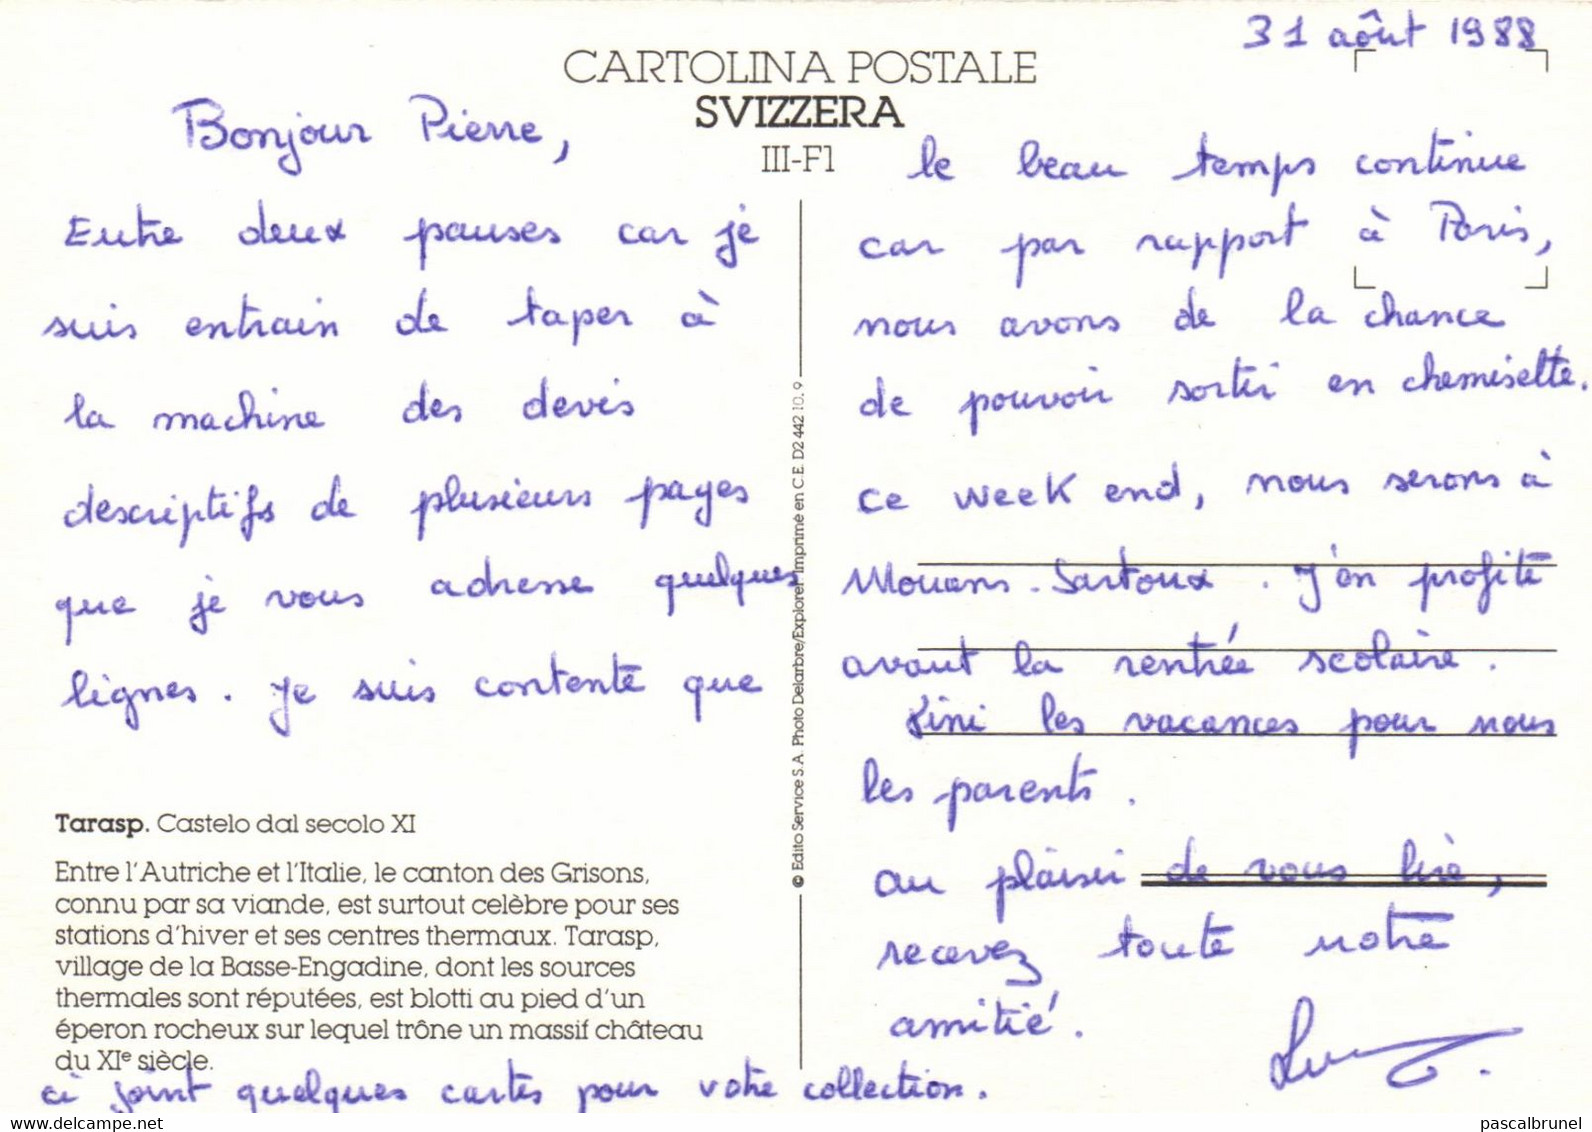 31 août 1988
CARTOLINA POSTALE
SVIZZERA
III-F1
Bonjour Pierre,
Entre deux pauses car je
suis entrain de taper à
la machine des devis
descriptifs de plusieurs pages
que je vous adresse quelques
lignes. Je suis contente que
le beau temps continue
car par rapport à Paris,
nous avons de la chance
de pouvoir sortir en chemisette.
ce week end, nous serons à
Mouans-Sartoux. J'en profite
avant la rentrée scolaire.
Fini les vacances pour nous
les parents.
au plaisir de vous lire,
recevez toute notre
amitié.
Tarasp. Castelo dal secolo XI
Entre l'Autriche et l'Italie, le canton des Grisons,
connu par sa viande, est surtout celèbre pour ses
stations d'hiver et ses centres thermaux. Tarasp,
village de la Basse-Engadine, dont les sources
thermales sont réputées, est blotti au pied d'un
éperon rocheux sur lequel trône un massif château
du XIe siècle.
ci joint quelques cartes pour votre collection.
© Edito Service S.A. Photo Delarbre/Explorer. Imprimé en C.E. D2 442 10.9
pascalbrunel